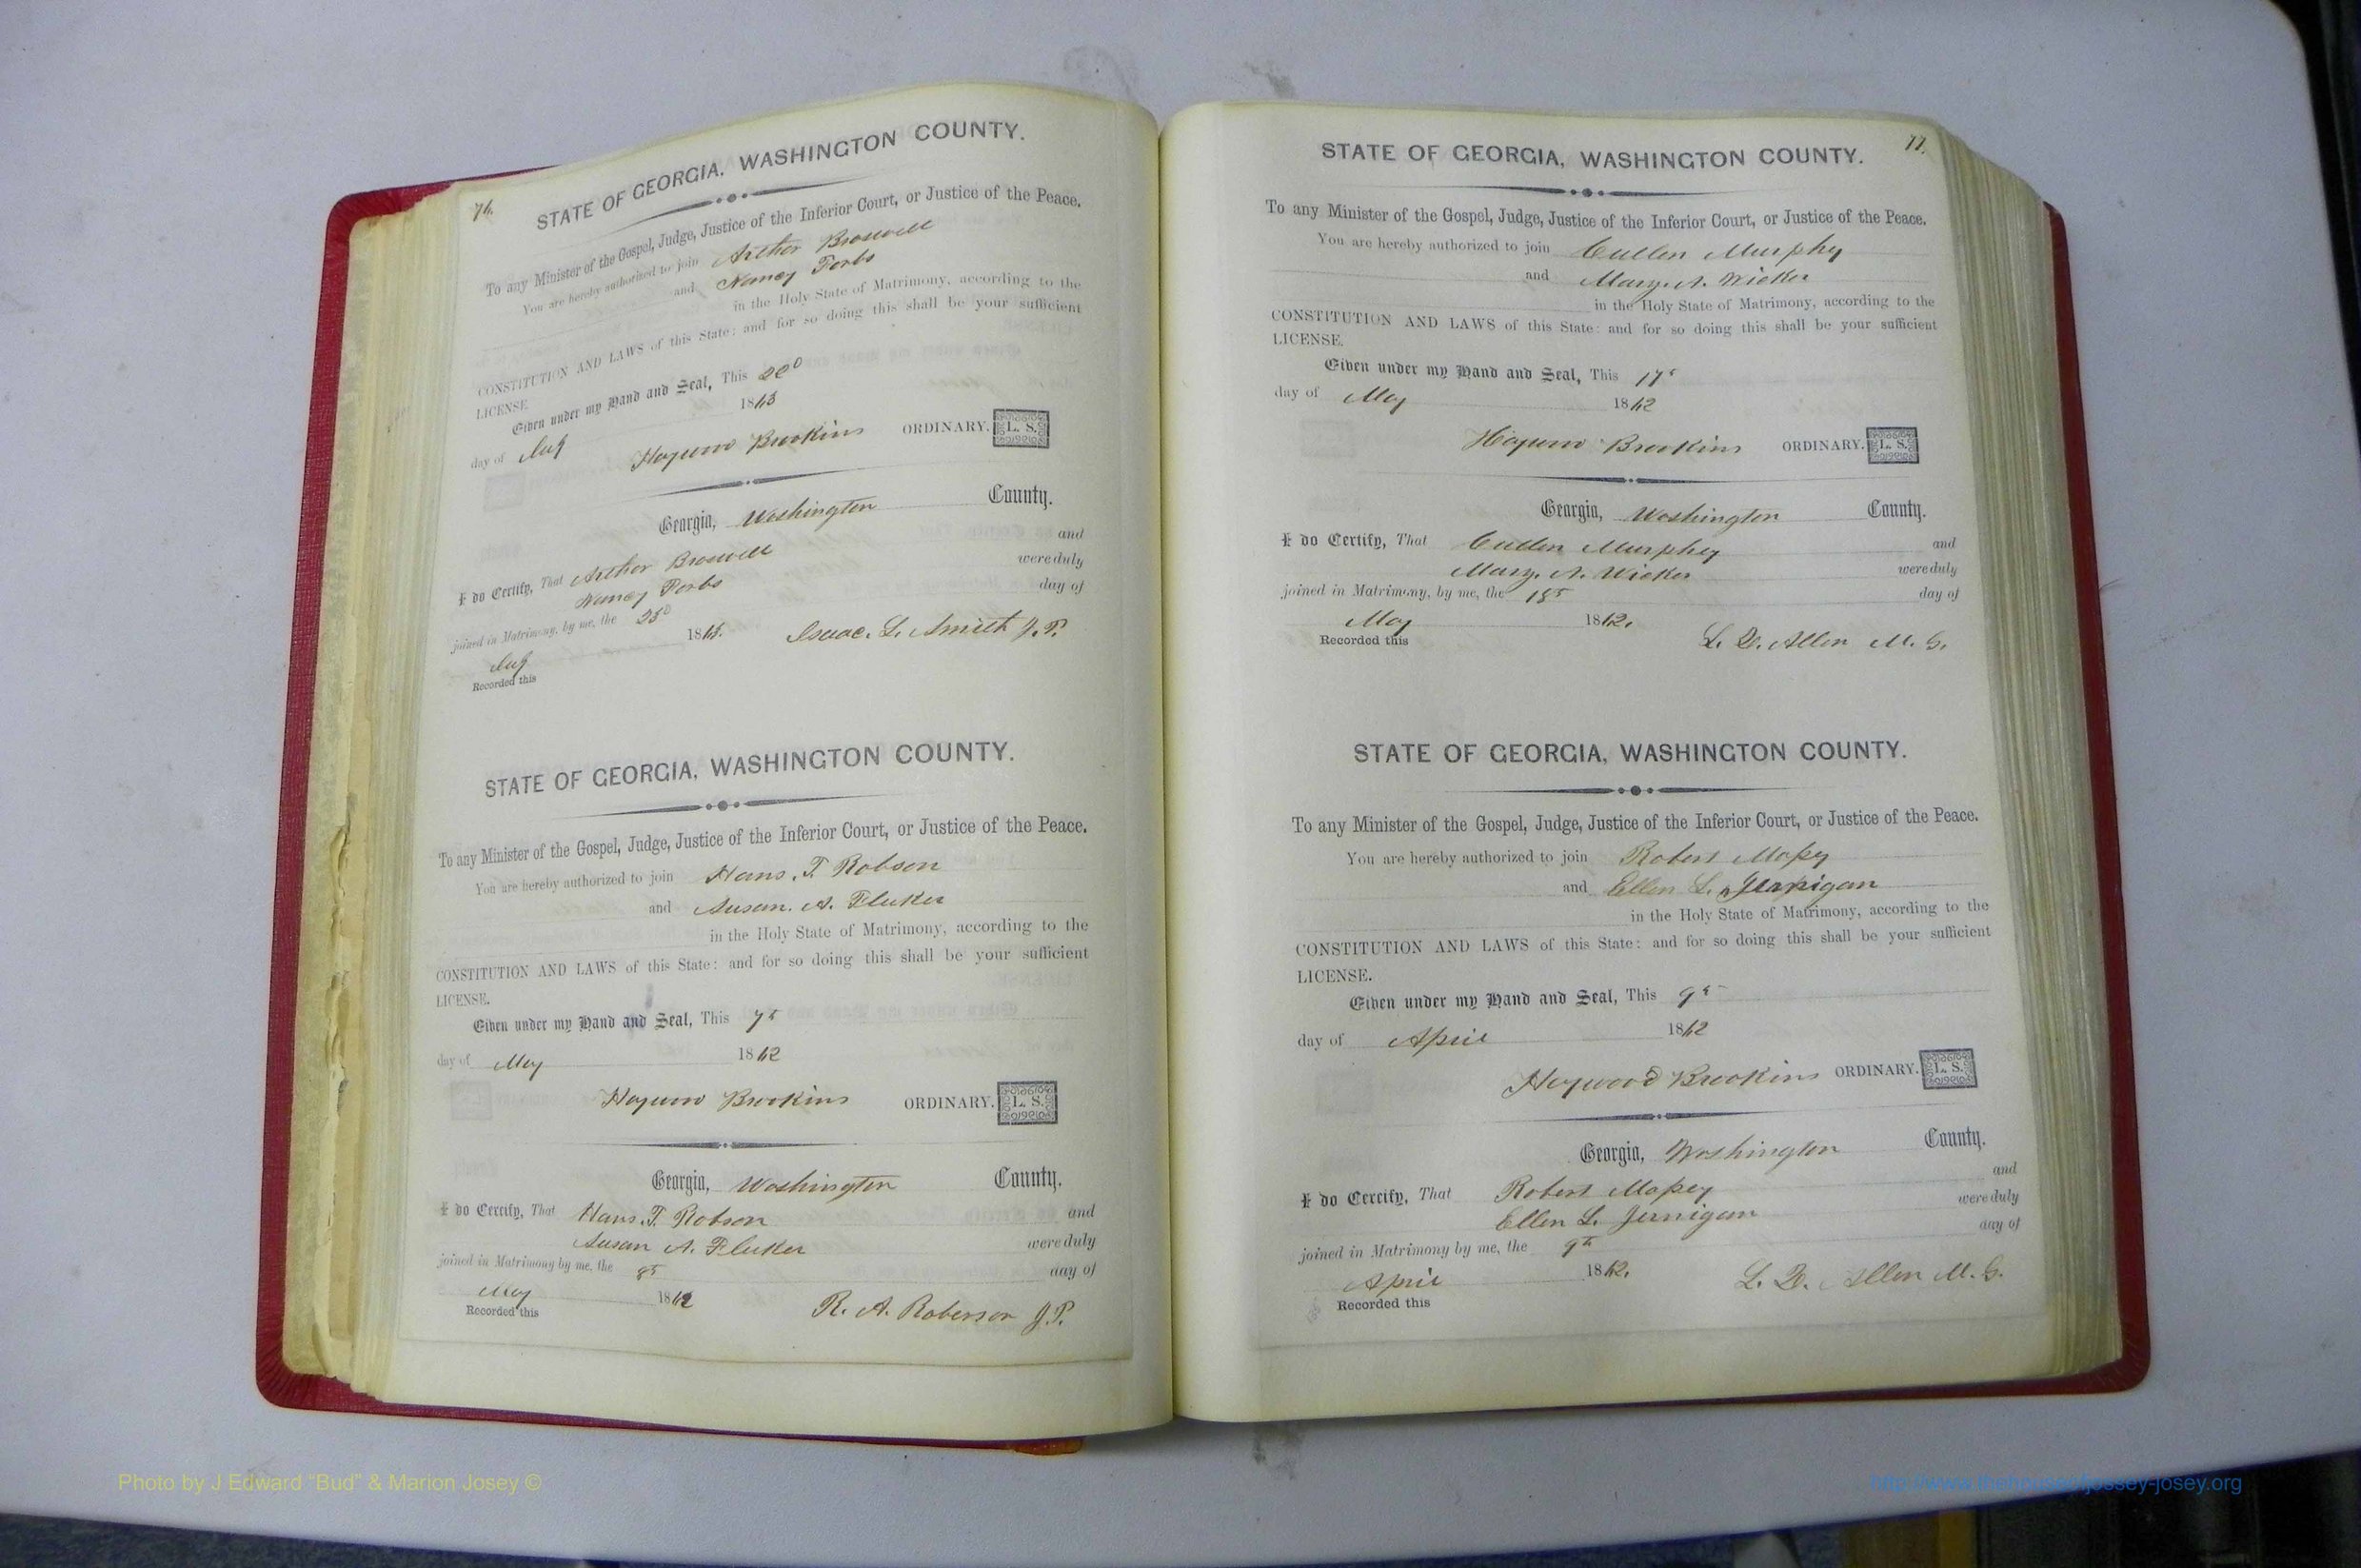 76.
STATE OF GEORGIA, WASHINGTON COUNTY.
To any Minister of the Gospel, Judge, Justice of the Inferior Court, or Justice of the Peace.
You are hereby authorized to join Arthor Braswell
and Nancy Forbs
in the Holy State of Matrimony, according to the
CONSTITUTION AND LAWS of this State: and for so doing this shall be your sufficient
LICENSE.
Given under my Hand and Seal, This
day of July 1863
Haywood Brookins ORDINARY. L. S.
Georgia, Washington County.
I do Certify, That Arthor Braswell and
Nancy Forbs were duly
joined in Matrimony, by me, the 23d day of
July 186
Isaac. L. Smith J. P.
Recorded this
STATE OF GEORGIA, WASHINGTON COUNTY.
To any Minister of the Gospel, Judge, Justice of the Inferior Court, or Justice of the Peace.
You are hereby authorized to join Hans. T. Robson
and Susan. A. Fluker
in the Holy State of Matrimony, according to the
CONSTITUTION AND LAWS of this State: and for so doing this shall be your sufficient
LICENSE.
Given under my Hand and Seal, This 7th
day of May 1862
Haywood Brookins ORDINARY. L. S.
Georgia, Washington County.
I do Certify, That Hans. T. Robson and
Susan A. Fluker were duly
joined in Matrimony by me, the 8th day of
May 1862
R. A. Roberson J. P.
Recorded this
77.
STATE OF GEORGIA, WASHINGTON COUNTY.
To any Minister of the Gospel, Judge, Justice of the Inferior Court, or Justice of the Peace.
You are hereby authorized to join Cullen Murphy
and Mary. A. Wicker
in the Holy State of Matrimony, according to the
CONSTITUTION AND LAWS of this State: and for so doing this shall be your sufficient
LICENSE.
Given under my Hand and Seal, This 17th
day of May 1862
Haywood Brookins ORDINARY. L. S.
Georgia, Washington County.
I do Certify, That Cullen Murphey and
Mary. A. Wicker were duly
joined in Matrimony, by me, the 18th day of
May 1862.
Recorded this L. D. Allen M. G.
STATE OF GEORGIA, WASHINGTON COUNTY.
To any Minister of the Gospel, Judge, Justice of the Inferior Court, or Justice of the Peace.
You are hereby authorized to join Robert Massey
and Ellen L.
in the Holy State of Matrimony, according to the
CONSTITUTION AND LAWS of this State: and for so doing this shall be your sufficient
LICENSE.
Given under my Hand and Seal, This 9th
day of April 1862
Haywood Brookins ORDINARY. L. S.
Georgia, Washington County.
I do Certify, That Robert Massey and
Ellen L. Jernigan were duly
joined in Matrimony by me, the 9th day of
April 1862.
L. D. Allen M. G.
Recorded this
Photo by J Edward “Bud” & Marion Josey ©